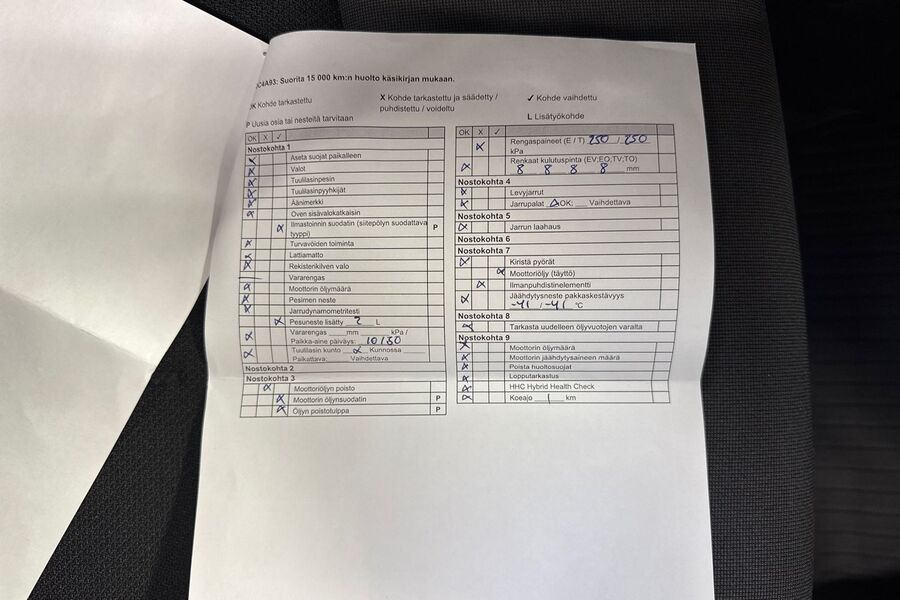 C4A93: Suorita 15 000 km:n huolto käsikirjan mukaan.
OK Kohde tarkastettu
X Kohde tarkastettu ja säädetty /
puhdistettu / voideltu
✓ Kohde vaihdettu
P Uusia osia tai nesteitä tarvitaan
L Lisätyökohde
OK X ✓
Nostokohta 1
Aseta suojat paikalleen
Valot
Tuulilasinpesin
Tuulilasinpyyhkijät
Äänimerkki
Oven sisävalokatkaisin
Ilmastoinnin suodatin (siitepölyn suodattava
tyyppi) P
Turvavöiden toiminta
Lattiamatto
Rekisterikilven valo
Vararengas
Moottorin öljymäärä
Pesimen neste
Jarrudynamometritesti
Pesuneste lisätty 2 L
Vararengas ___mm ___ kPa /
Paikka-aine päiväys: 10/30
Tuulilasin kunto ___ Kunnossa ___
Paikattava:___ Vaihdettava
Nostokohta 2
Nostokohta 3
Moottoriöljyn poisto
Moottorin öljynsuodatin P
Öljyn poistotulppa P
OK X ✓
Rengaspaineet (E / T) 250 / 250
kPa
Renkaat kulutuspinta (EV;EO;TV;TO)
8 8 8 8 mm
Nostokohta 4
Levyjarrut
Jarrupalat OK; ___ Vaihdettava
Nostokohta 5
Jarrun laahaus
Nostokohta 6
Nostokohta 7
Kiristä pyörät
Moottoriöljy (täyttö)
Ilmanpuhdistinelementti
Jäähdytysneste pakkaskestävyys
-41 / -41 °C
Nostokohta 8
Tarkasta uudelleen öljyvuotojen varalta
Nostokohta 9
Moottorin öljymäärä
Moottorin jäähdytysaineen määrä
Poista huoltosuojat
Lopputarkastus
HHC Hybrid Health Check
Koeajo 1 km